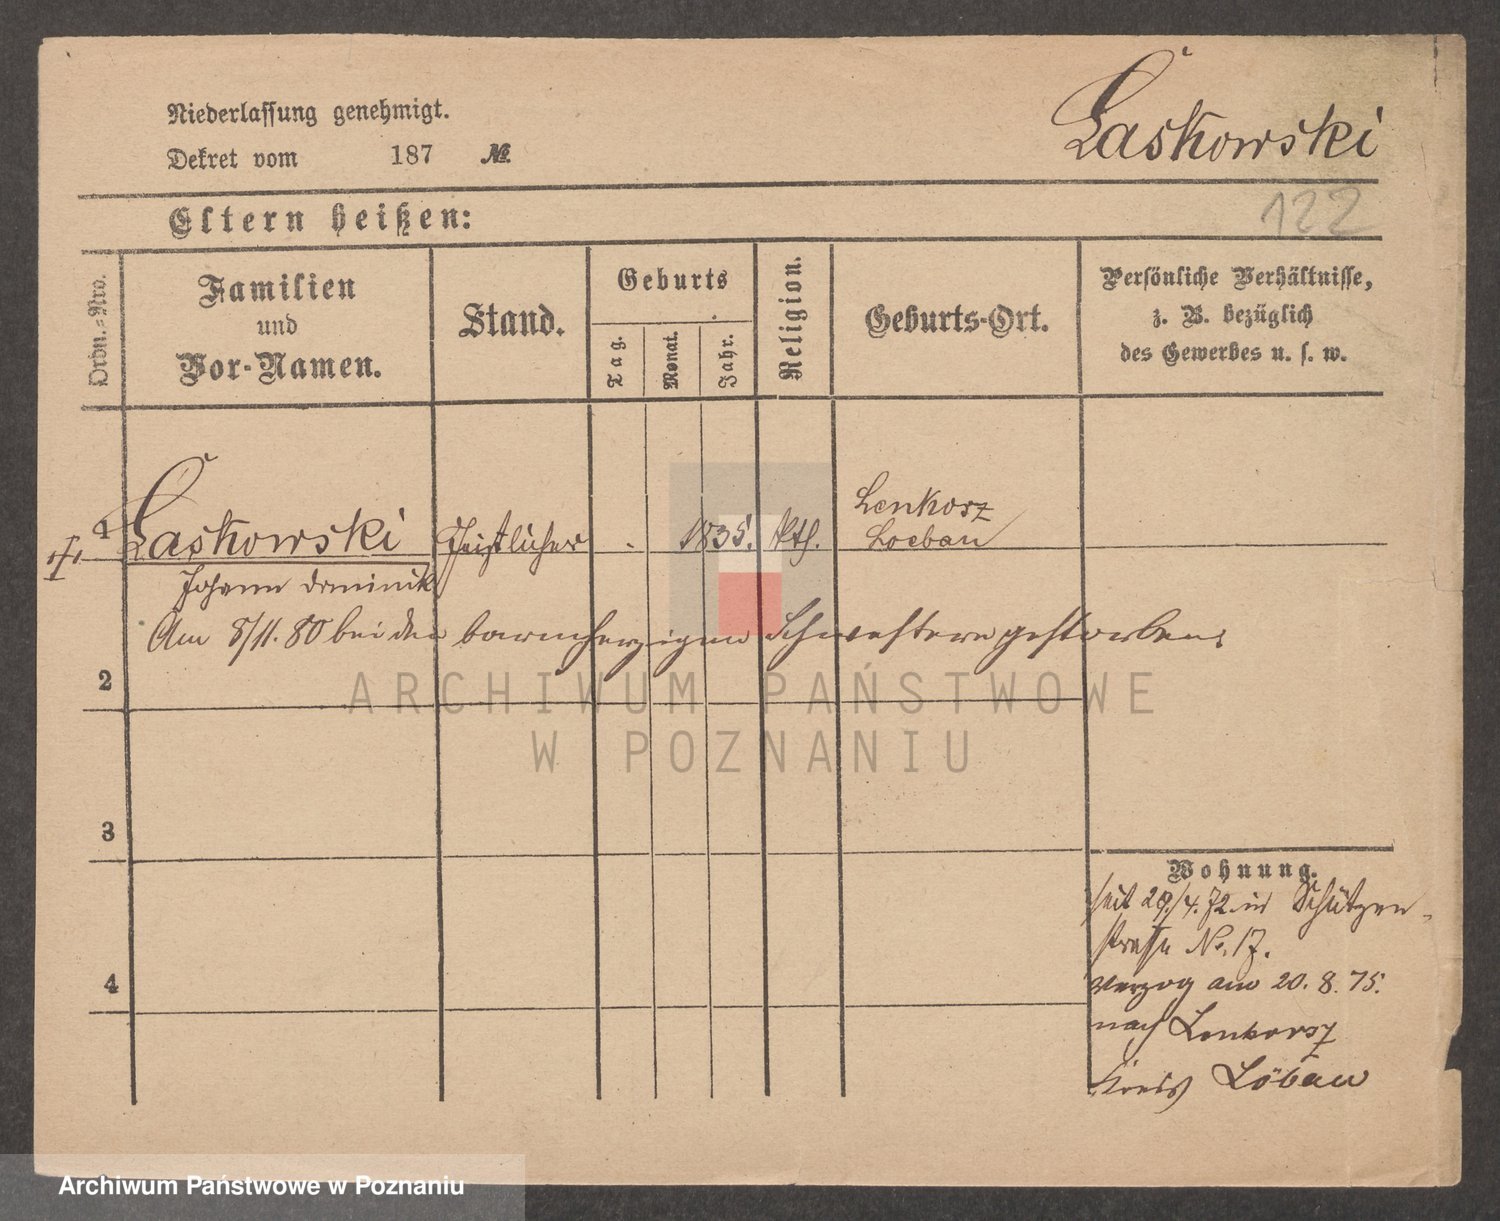 Laskowski
Niederlassung genehmigt.
Dekret vom 187 №
122
Eltern heißen:
Ordn.-Nro.
Familien
und
Vor-Namen.
Stand.
Geburts
Tag.
Monat.
Jahr.
Religion.
Geburts-Ort.
Persönliche Verhältnisse,
z. B. bezüglich
des Gewerbes u. s. w.
1 Laskowski Geistlicher - 1835. kth. Lenkorsz
Loebau
Johann Dominik
Am 8/11. 80 bei den barmherzigen Schwestern gestorben
2
ARCHIWUM PAŃSTWOWE
W POZNANIU
3
4
Wohnung.
seit 29./4. 72 in Schützen-
strasse No. 17.
verzog am 20. 8. 75.
nach Lenkorsz
Kreis Löbau
Archiwum Państwowe w Poznaniu